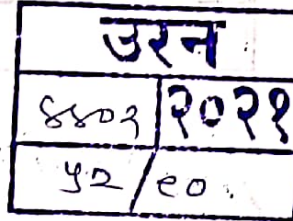 उरन
४४०२ २०२१
५२/९०